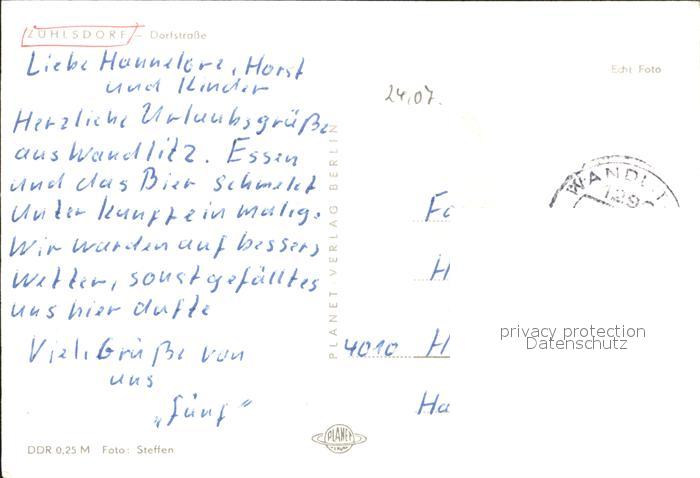 ZÜHLSDORF – Dorfstraße
Liebe Hannelore, Horst
und Kinder
Herzliche Urlaubsgrüße
aus Wandlitz. Essen
und das Bier schmeckt
Unterkunft einmalig.
Wir warden auf bessers
Wetter, sonst gefälltes
uns hier dufte
Viele Grüße von
uns
„Fünf“
DDR 0,25 M Foto: Steffen
PLANET VERLAG BERLIN
PLANET
Echt Foto
24.07.
WANDLIT
129
Fa
H
4010 H
Ha
privacy protection
Datenschutz